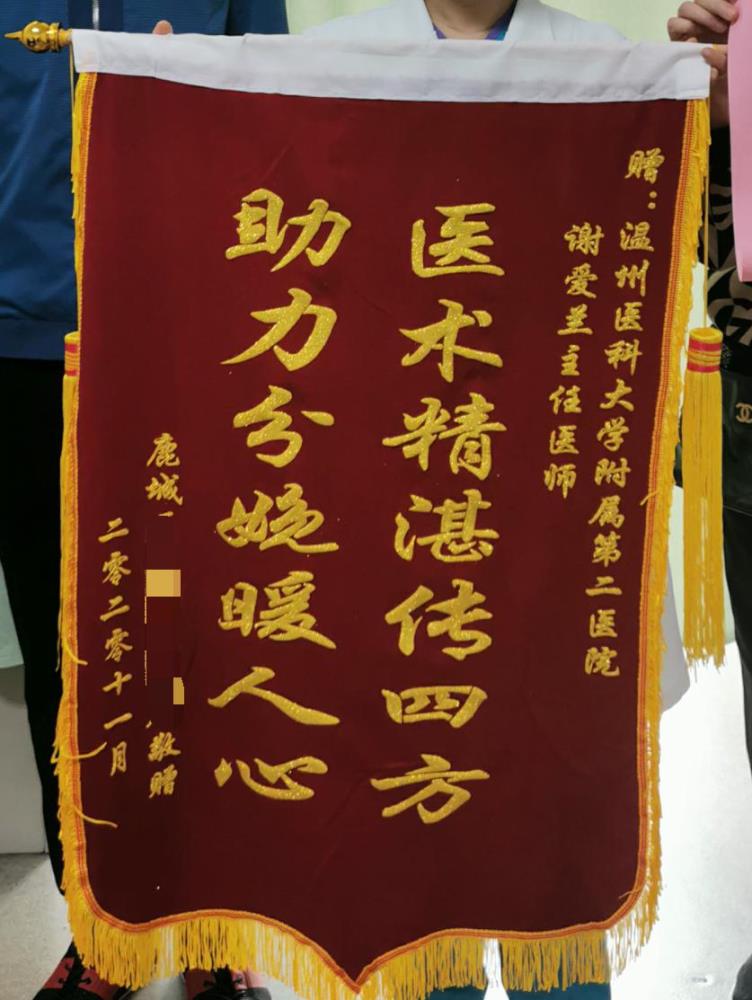 赠：温州医科大学附属第二医院
谢爱兰主任医师
医术精湛传四方
助力分娩暖人心
鹿城
敬赠
二零二零十一月